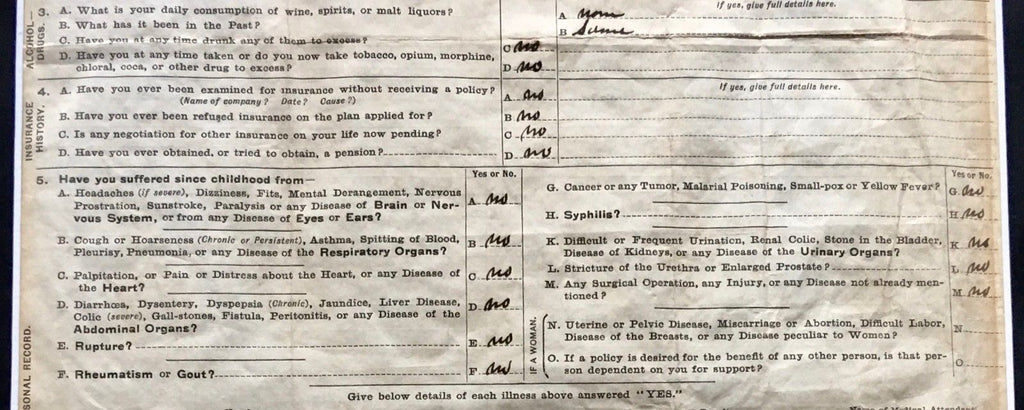 3. A. What is your daily consumption of wine, spirits, or malt liquors?
A none
If yes, give full details here.
B. What has it been in the Past?
B Same
C. Have you at any time drunk any of them to excess?
C no
D. Have you at any time taken or do you now take tobacco, opium, morphine,
chloral, coca, or other drug to excess?
D no
ALCOHOL—
DRUGS.
4. A. Have you ever been examined for insurance without receiving a policy?
(Name of company? Date? Cause?)
A no
If yes, give full details here.
B. Have you ever been refused insurance on the plan applied for?
B no
C. Is any negotiation for other insurance on your life now pending?
C no
D. Have you ever obtained, or tried to obtain, a pension?
D no
INSURANCE
HISTORY.
5. Have you suffered since childhood from—
Yes or No.
A. Headaches (if severe), Dizziness, Fits, Mental Derangement, Nervous
Prostration, Sunstroke, Paralysis or any Disease of Brain or Ner-
vous System, or from any Disease of Eyes or Ears?
A no
B. Cough or Hoarseness (Chronic or Persistent), Asthma, Spitting of Blood,
Pleurisy, Pneumonia, or any Disease of the Respiratory Organs?
B no
C. Palpitation, or Pain or Distress about the Heart, or any Disease of
the Heart?
C no
D. Diarrhœa, Dysentery, Dyspepsia (Chronic), Jaundice, Liver Disease,
Colic (severe), Gall-stones, Fistula, Peritonitis, or any Disease of the
Abdominal Organs?
D no
E. Rupture?
E no
F. Rheumatism or Gout?
F no
Yes or No.
G. Cancer or any Tumor, Malarial Poisoning, Small-pox or Yellow Fever?
G no
H. Syphilis?
H no
K. Difficult or Frequent Urination, Renal Colic, Stone in the Bladder,
Disease of Kidneys, or any Disease of the Urinary Organs?
K no
L. Stricture of the Urethra or Enlarged Prostate?
L no
M. Any Surgical Operation, any Injury, or any Disease not already men-
tioned?
M no
IF A WOMAN.
N. Uterine or Pelvic Disease, Miscarriage or Abortion, Difficult Labor,
Disease of the Breasts, or any Disease peculiar to Women?
N
O. If a policy is desired for the benefit of any other person, is that per-
son dependent on you for support?
O
SONAL RECORD.
Give below details of each illness above answered "YES."